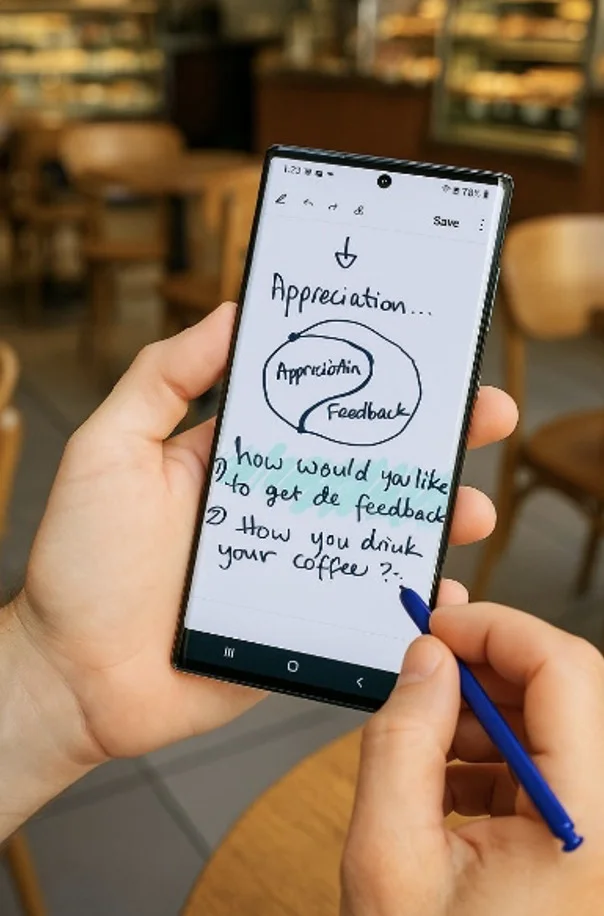 1:23
78%
Save
Appreciation...
Appreciatin
Feedback
how would you like
1) to get de feedback
2) How you drink
your coffee ?..